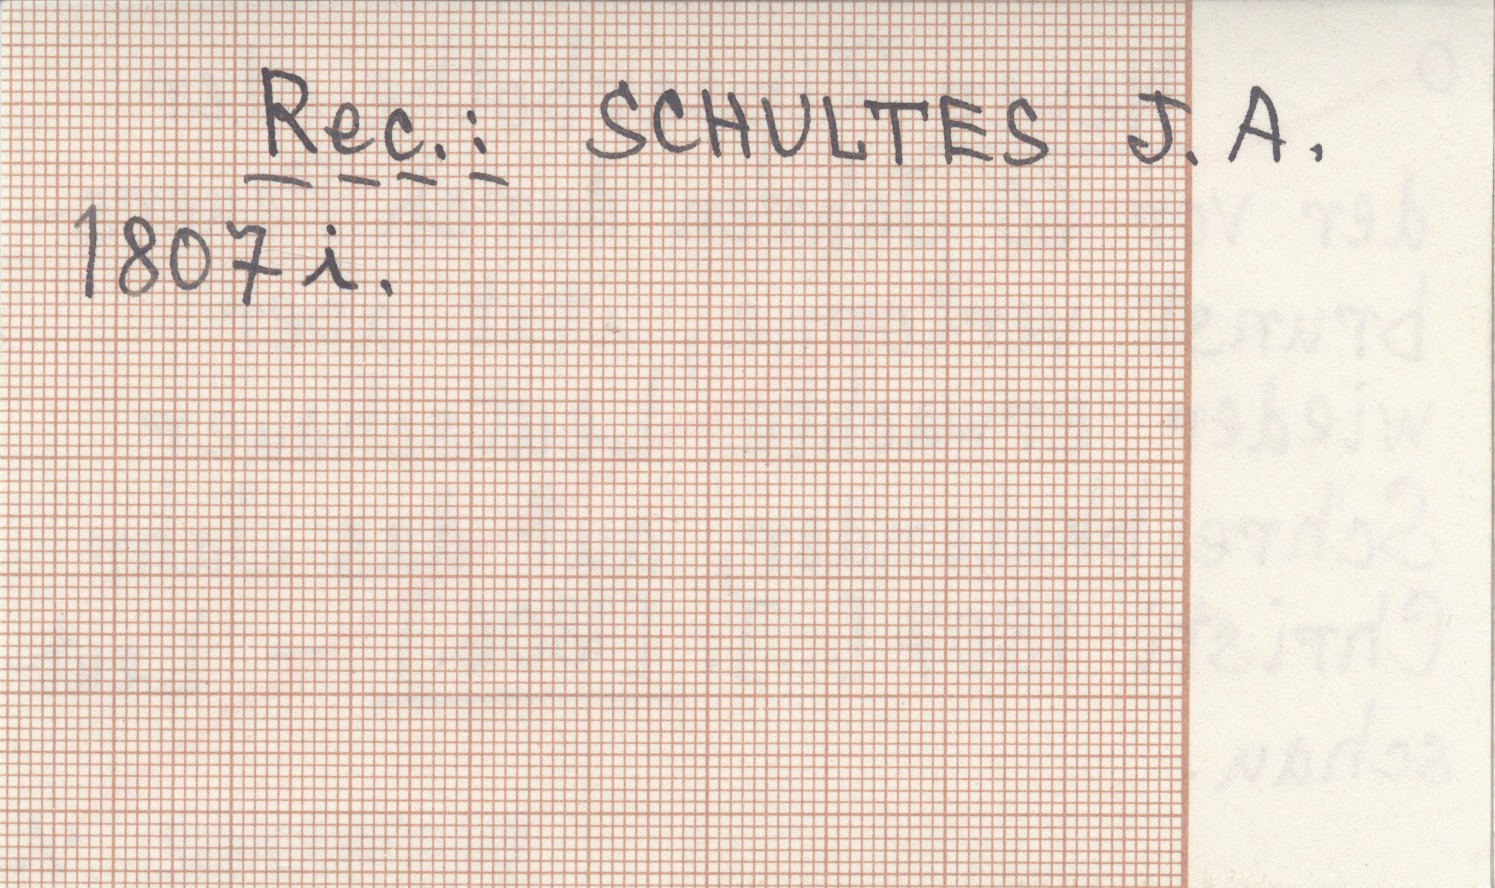 Rec.: SCHULTES J. A.
1807 i.